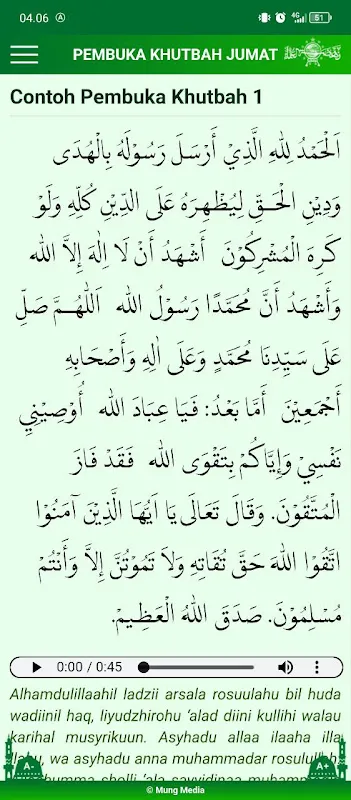 04.06
4G
51
PEMBUKA KHUTBAH JUMAT
Contoh Pembuka Khutbah 1
اَلْحَمْدُ لِلهِ الَّذِيْ أَرْسَلَ رَسُوْلَهُ بِالْهُدَى
وَدِيْنِ الْحَـقِّ لِيُظْهِرَهُ عَلَى الدِّيْنِ كُلِّهِ وَلَوْ
كَرِهَ الْمُشْرِكُوْنَ أَشْهَدُ أَنْ لَا اِلٰهَ اِلاَّ الله
وَأَشْهَدُ أَنَّ مُحَمَّدًا رَسُوْلُ الله اَللّٰهُــمَّ صَلِّ
عَلَى سَيِّدِنَا مُحَمَّدٍ وَعَلَى اٰلِهِ وَأَصْحَابِهِ
أَجْمَعِيْنَ أَمَّا بَعْدُ: فَيَا عِبَادَ الله أُوْصِيْنِيْ
نَفْسِيْ وَإِيَّاكُمْ بِتَقْوَى الله فَقَدْ فَازَ
الْمُتَّقُوْنَ. وَقَالَ تَعَالَى يَا اَيُهَا الَّذِيْنَ آمَنُوْا
اتَّقُوْا اللهَ حَقَّ تُقَاتِهِ وَلاَ تَمُوْتُنَّ إِلاَّ وَأَنْتُمْ
مُسْلِمُوْنَ. صَدَقَ اللهُ الْعَظِيمْ.
0:00 / 0:45
Alhamdulillaahil ladzii arsala rosuulahu bil huda
wadiinil haq, liyudzhirohu ‘alad diini kullihi walau
karihal musyrikuun. Asyhadu allaa ilaaha illa
wa asyhadu anna muhammadar rosulull
sholli ‘ala sayyidinaa
A-
A+
© Mung Media